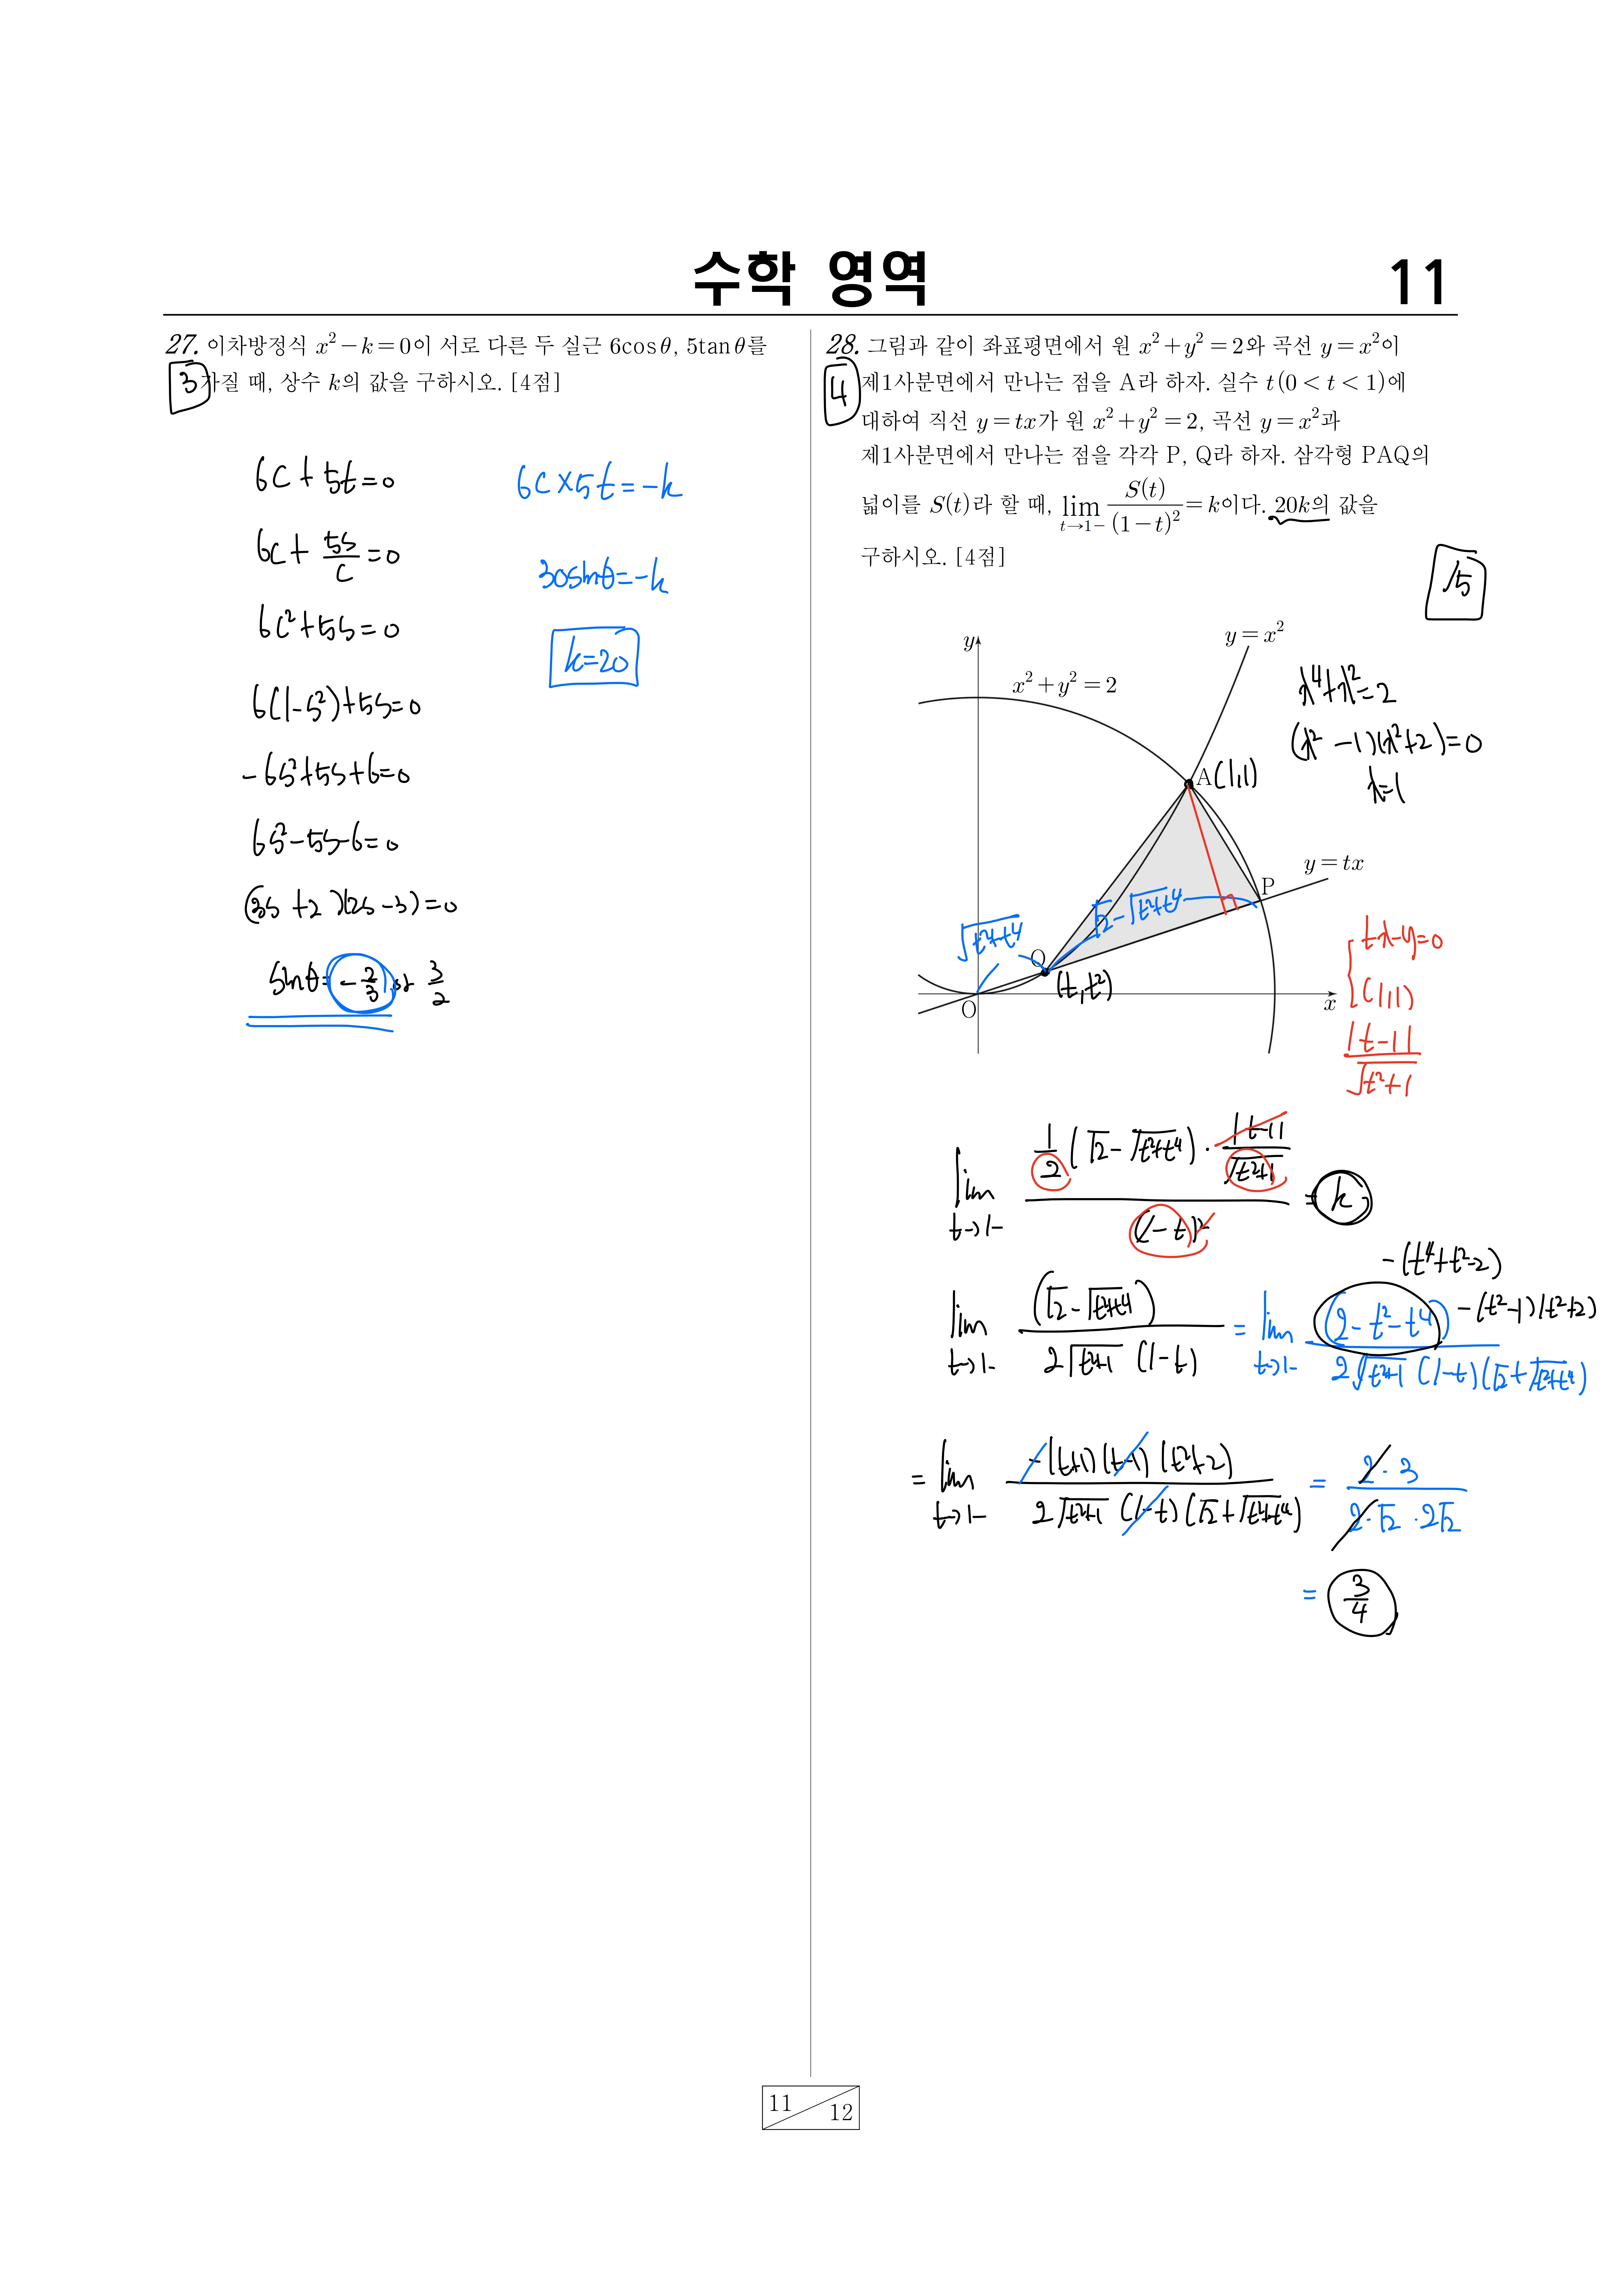 수학 영역
11
27. 이차방정식 x² − k = 0이 서로 다른 두 실근 6cosθ, 5tanθ를
가질 때, 상수 k의 값을 구하시오. [4점]
3
6c + 5t = 0
6c + 5s/c = 0
6c² + 5s = 0
6(1-s²) + 5s = 0
-6s² + 5s + 6 = 0
6s² - 5s - 6 = 0
(3s + 2)(2s - 3) = 0
sinθ = -2/3 or 3/2
6c × 5t = -k
30sinθ = -k
k = 20
28. 그림과 같이 좌표평면에서 원 x² + y² = 2와 곡선 y = x²이
4
제1사분면에서 만나는 점을 A라 하자. 실수 t(0 < t < 1)에
대하여 직선 y = tx가 원 x² + y² = 2, 곡선 y = x²과
제1사분면에서 만나는 점을 각각 P, Q라 하자. 삼각형 PAQ의
넓이를 S(t)라 할 때, lim t→1− S(t)/(1−t)² = k이다. 20k의 값을
구하시오. [4점]
15
y
y = x²
x² + y² = 2
x⁴ + x² = 2
(x² - 1)(x² + 2) = 0
x = 1
A (1,1)
y = tx
P
√2 - √t²+t⁴
√t²+t⁴
Q
(t, t²)
O
x
tx - y = 0
(1,1)
|t-1| / √t²+1
lim t→1- 1/2 (√2 - √t²+t⁴) · |t-1|/√t²+1 / (1-t)² = k
lim t→1- (√2 - √t²+t⁴) / 2√t²+1 (1-t) = lim t→1- (2 - t² - t⁴) / 2√t²+1 (1-t)(√2 + √t²+t⁴)
-(t⁴+t²-2)
-(t²-1)(t²+2)
= lim t→1- -(t+1)(t-1)(t²+2) / 2√t²+1 (1-t)(√2 + √t²+t⁴) = 2·3 / 2·√2·2√2
= 3/4
11
12